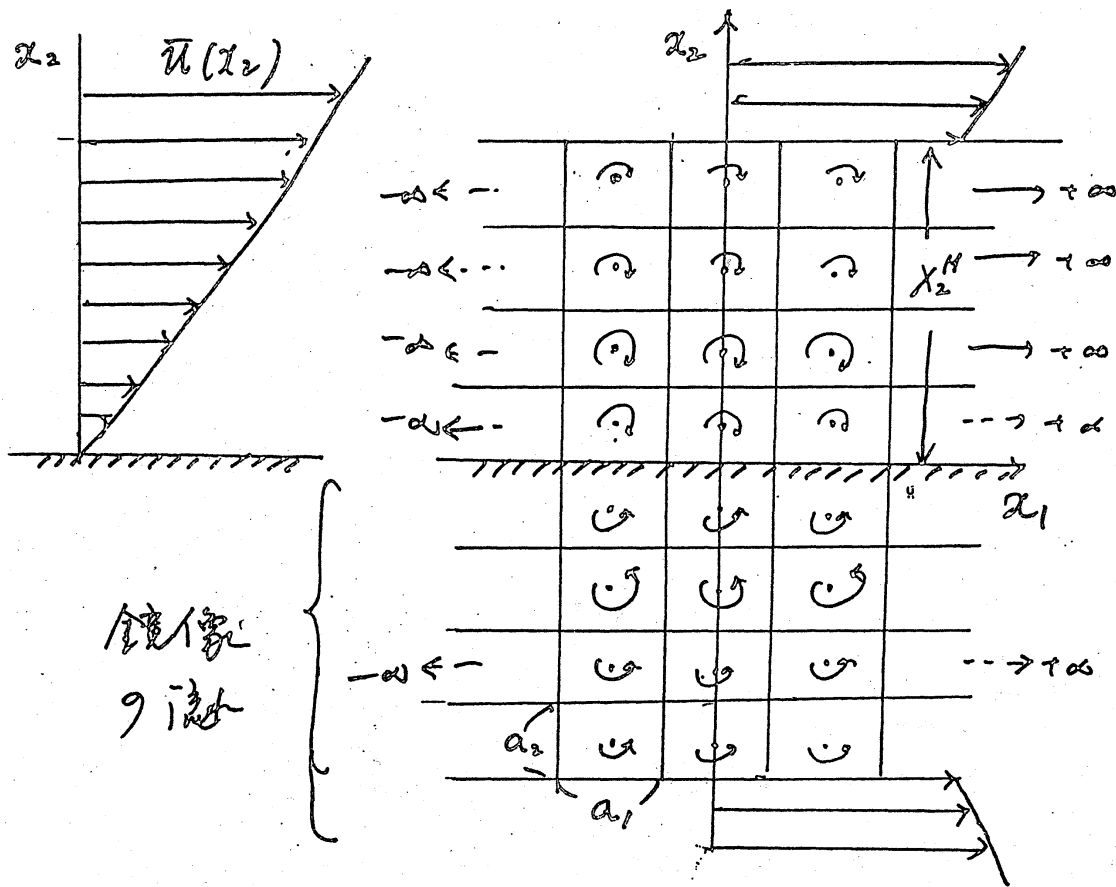 x₂
ū(x₂)
x₂
-∞
+∞
-∞
+∞
X₂ᴴ
-∞
+∞
-∞
+∞
x₁
鏡像
の渦
-∞
+∞
a₂
a₁